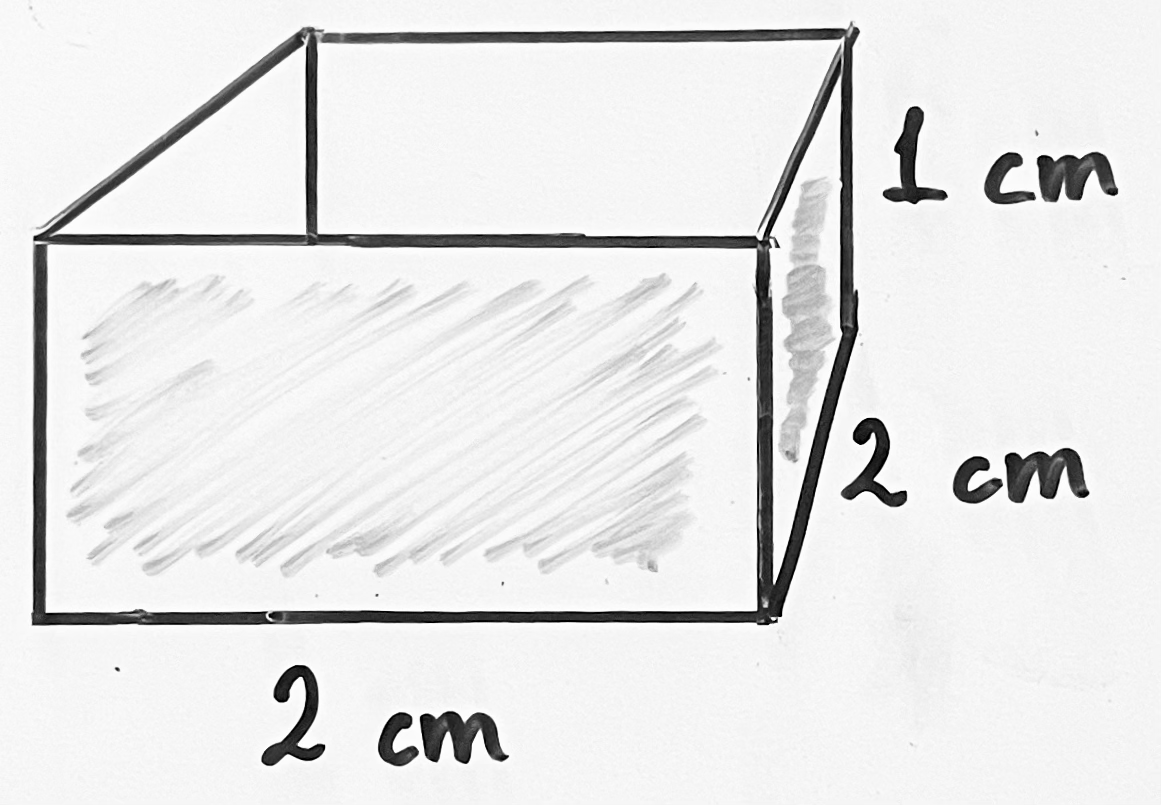 1 cm
2 cm
2 cm